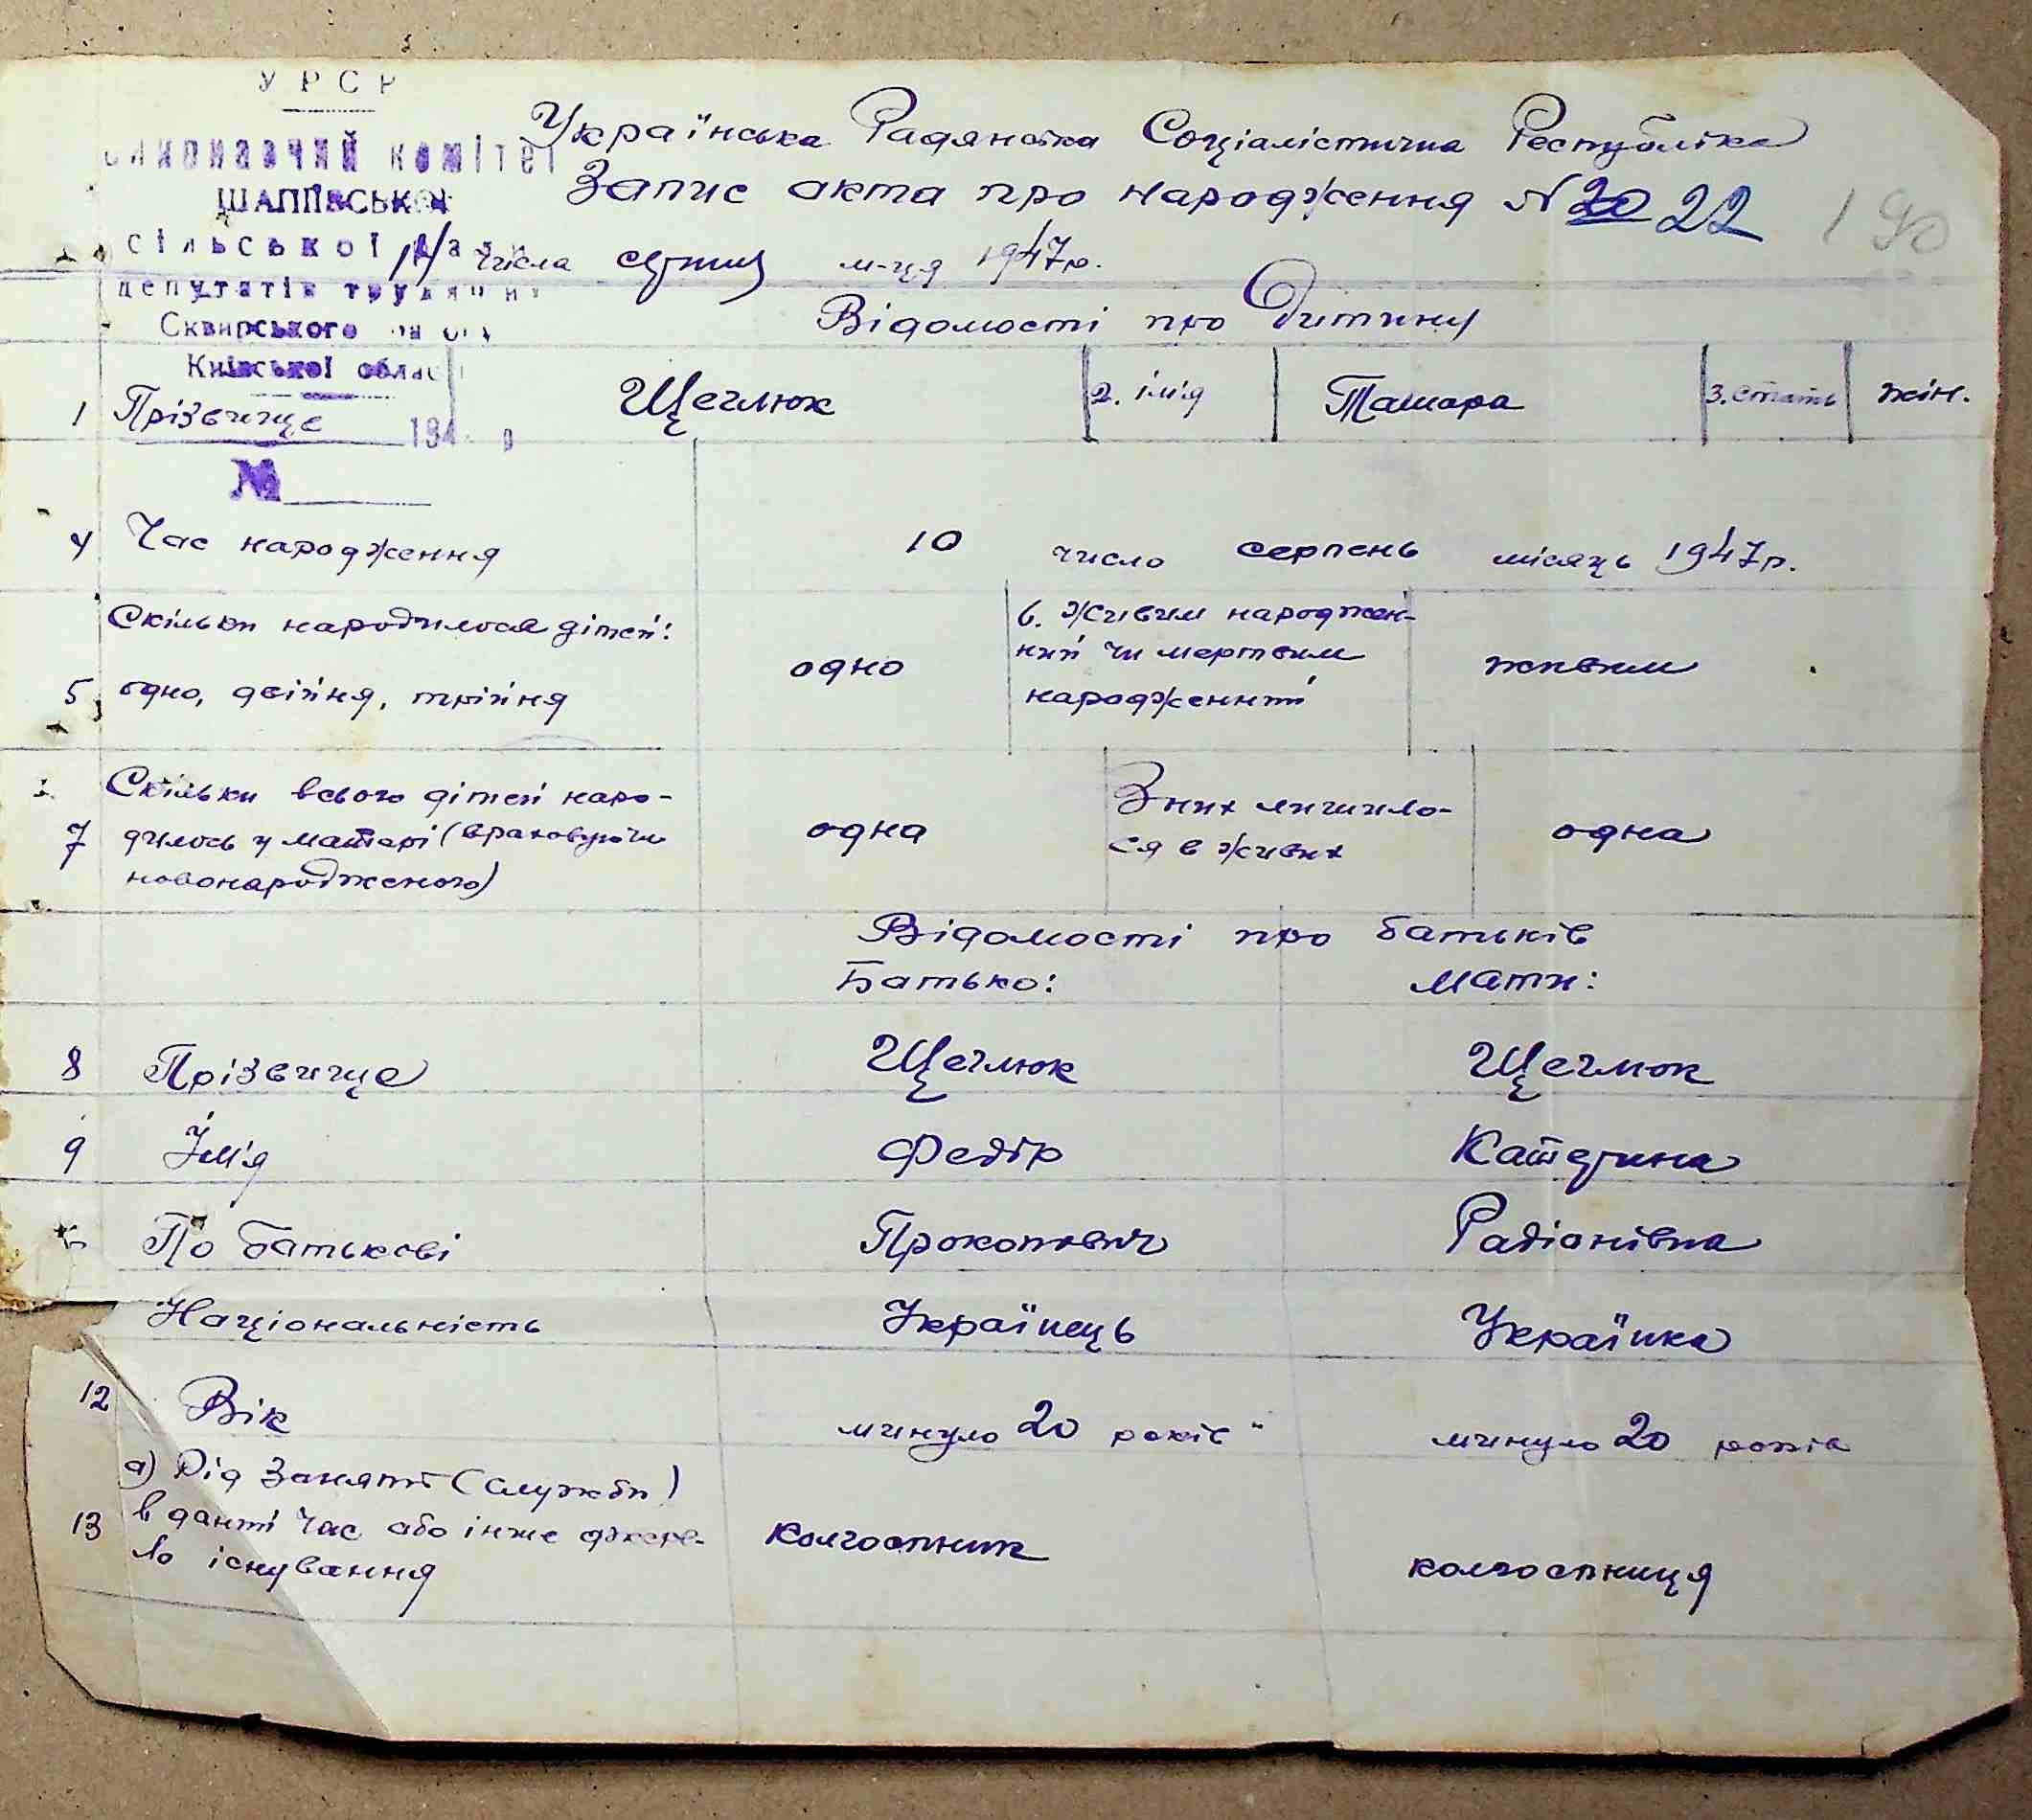 УРСР
Виконавчий комітет
ШАПІЇВСЬКОЇ
сільської Ради
депутатів трудящих
Сквирського р-ну
Київської області
194 р
№
Українська Радянська Соціалістична Республіка
Запис акта про народження № 20 22 190
числа м-ця 1947р.
Відомості про дитину
1 Прізвище Щеглюк 2. ім'я Тамара 3. стать жін.
4 Час народження 10 число серпень місяць 1947р.
Скільки народилося дітей:
5 одно, двійня, трійня одно
6. Живим народжен-
ний чи мертвим
народженний
живим
Скільки всього дітей наро-
7 дилось у матері (враховуючи
новонародженого)
одна
З них лишило-
ся в живих
одна
Відомості про батьків
Батько: Мати:
8 Прізвище Щеглюк Щеглюк
9 Ім'я Федір Катерина
По батькові Прокопович Радіонівна
Національність Українець Українка
12 Вік минуло 20 років минуло 20 років
а) Рід занять (служби)
13 в даний час або інше джере-
ло існування
колгоспник колгоспниця